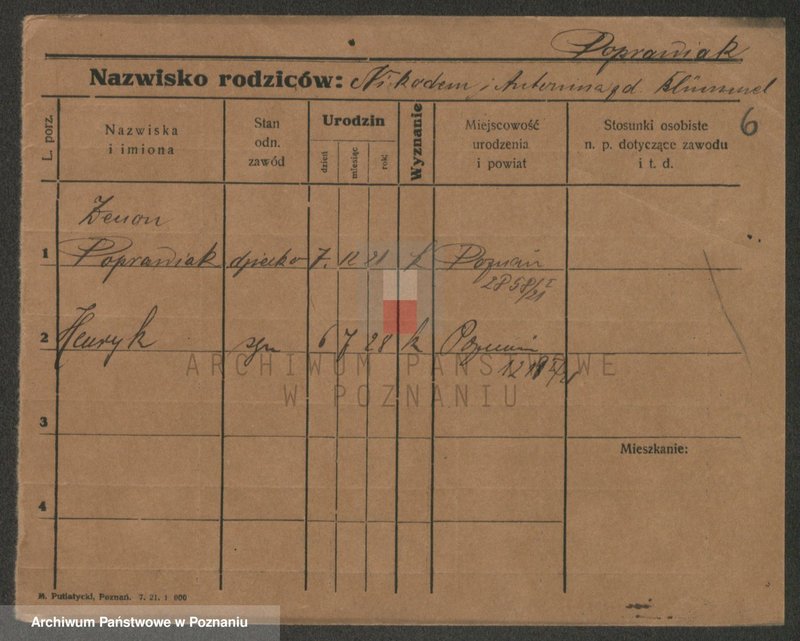 Poprawiak
Nazwisko rodziców: Nikodem i Antonina z d. Klümmel
6
L. porz.
Nazwiska i imiona
Stan odn. zawód
Urodzin
dzień
miesiąc
rok
Wyznanie
Miejscowość urodzenia i powiat
Stosunki osobiste n. p. dotyczące zawodu i t. d.
Zenon
1 Poprawiak dziecko 7. 12 21 k Poznań
2858/I/21
2 Henryk syn 6 7 28 k Poznań
ARCHIWUM PAŃSTWOWE
W POZNANIU
3
Mieszkanie:
4
M. Putiatycki, Poznań. 7. 21. 1 000
Archiwum Państwowe w Poznaniu